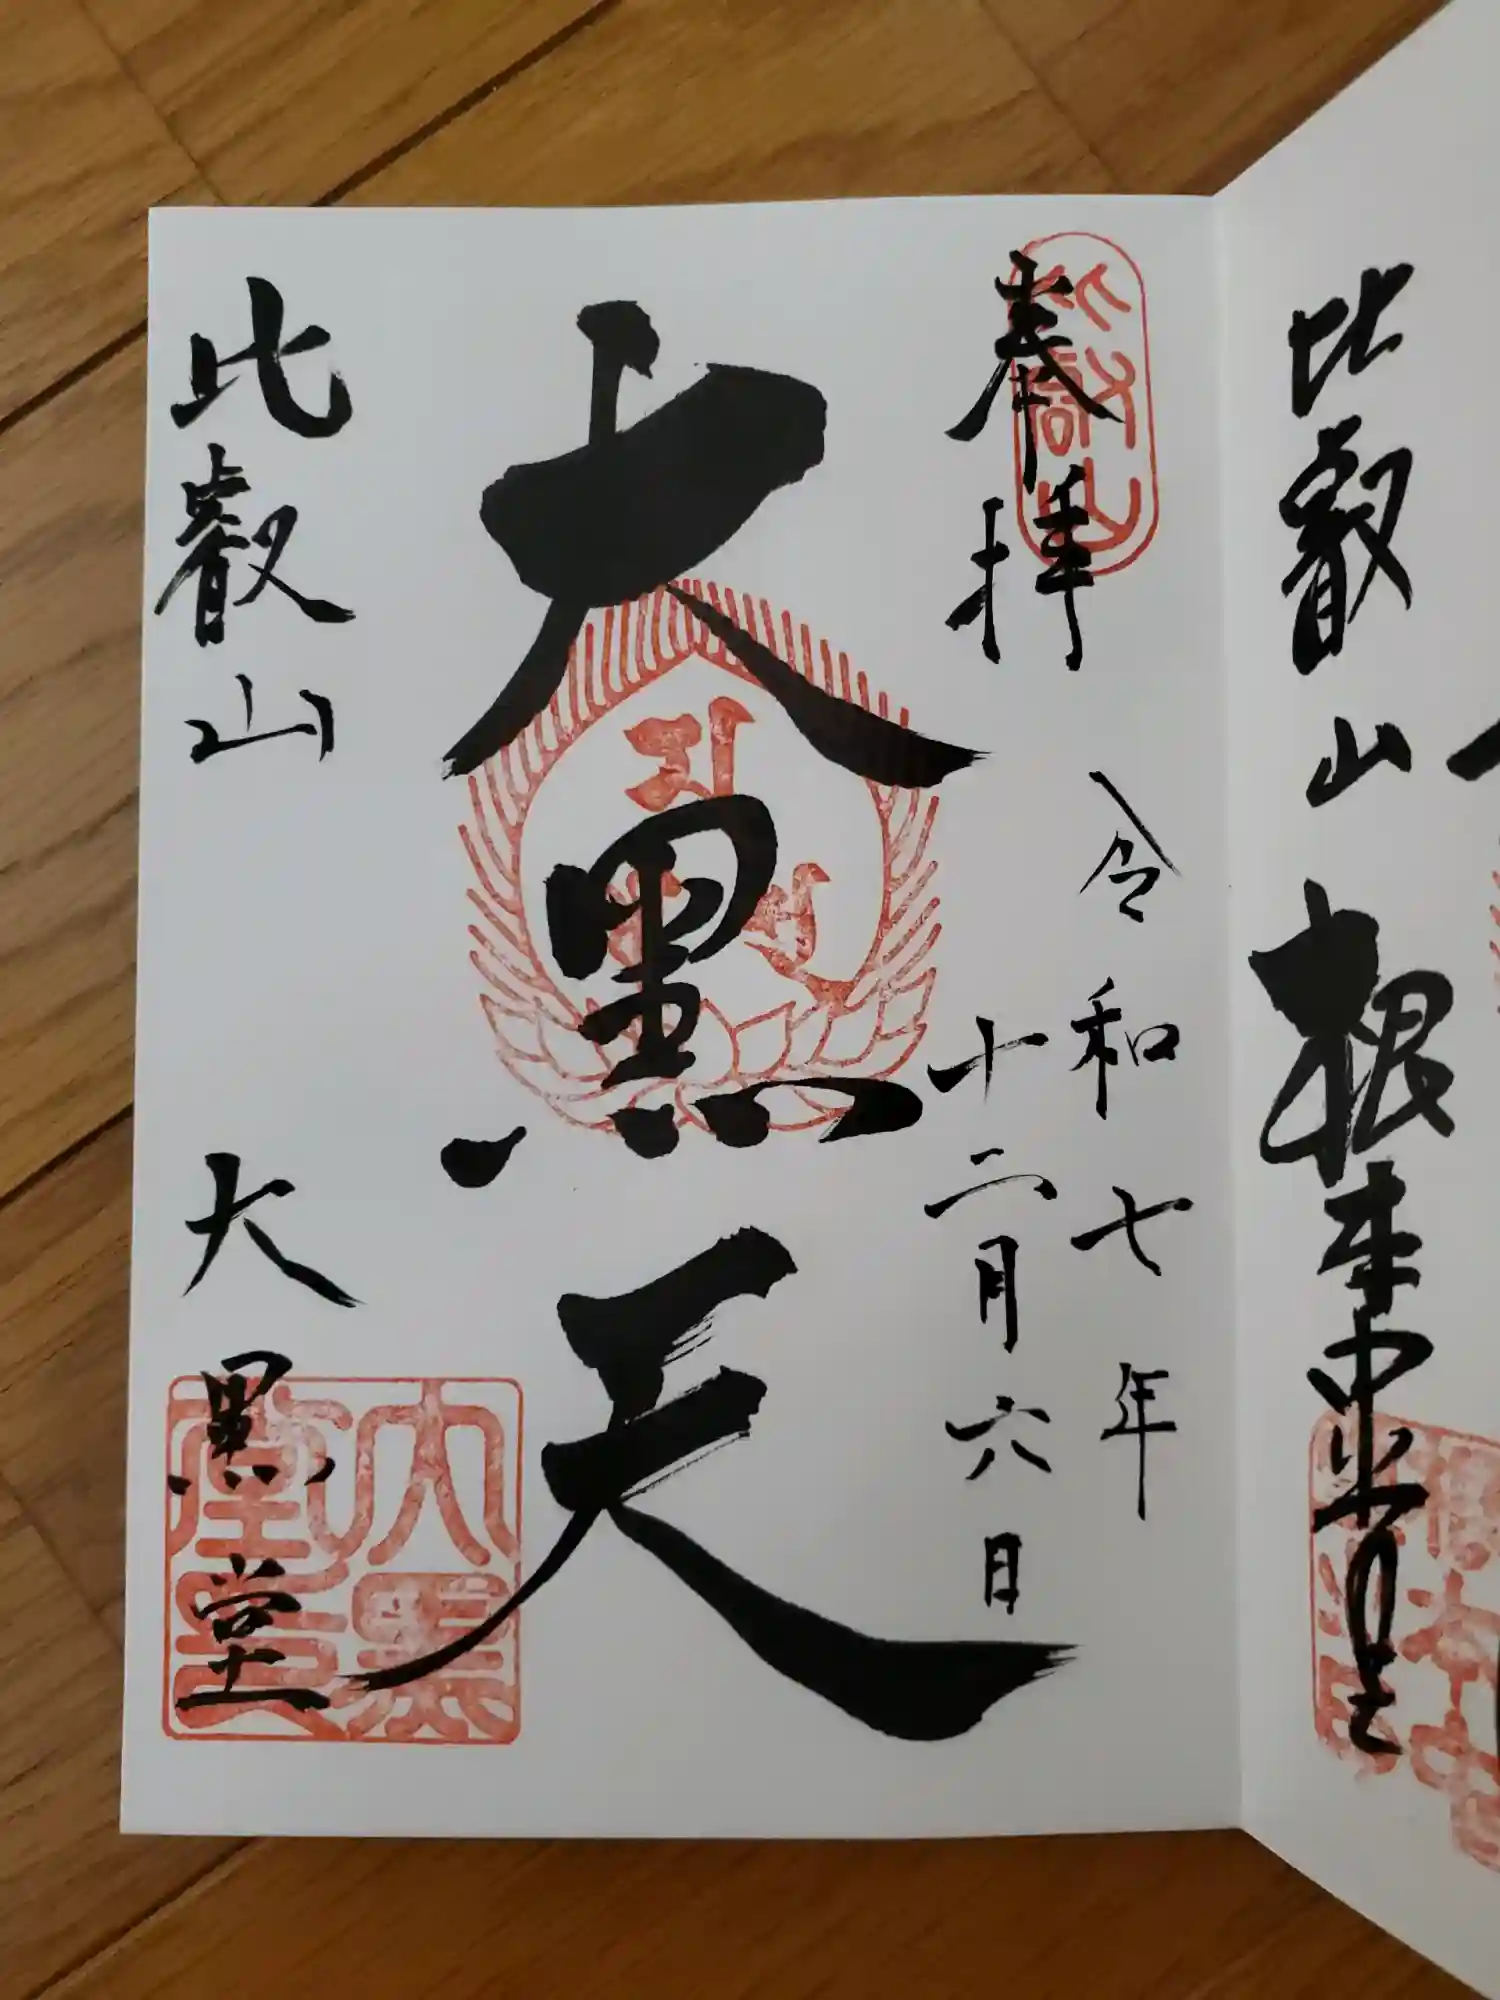 比叡山 根本中堂
奉拝
令和七年
十二月六日
大黒天
比叡山 大黒堂
大黒堂印